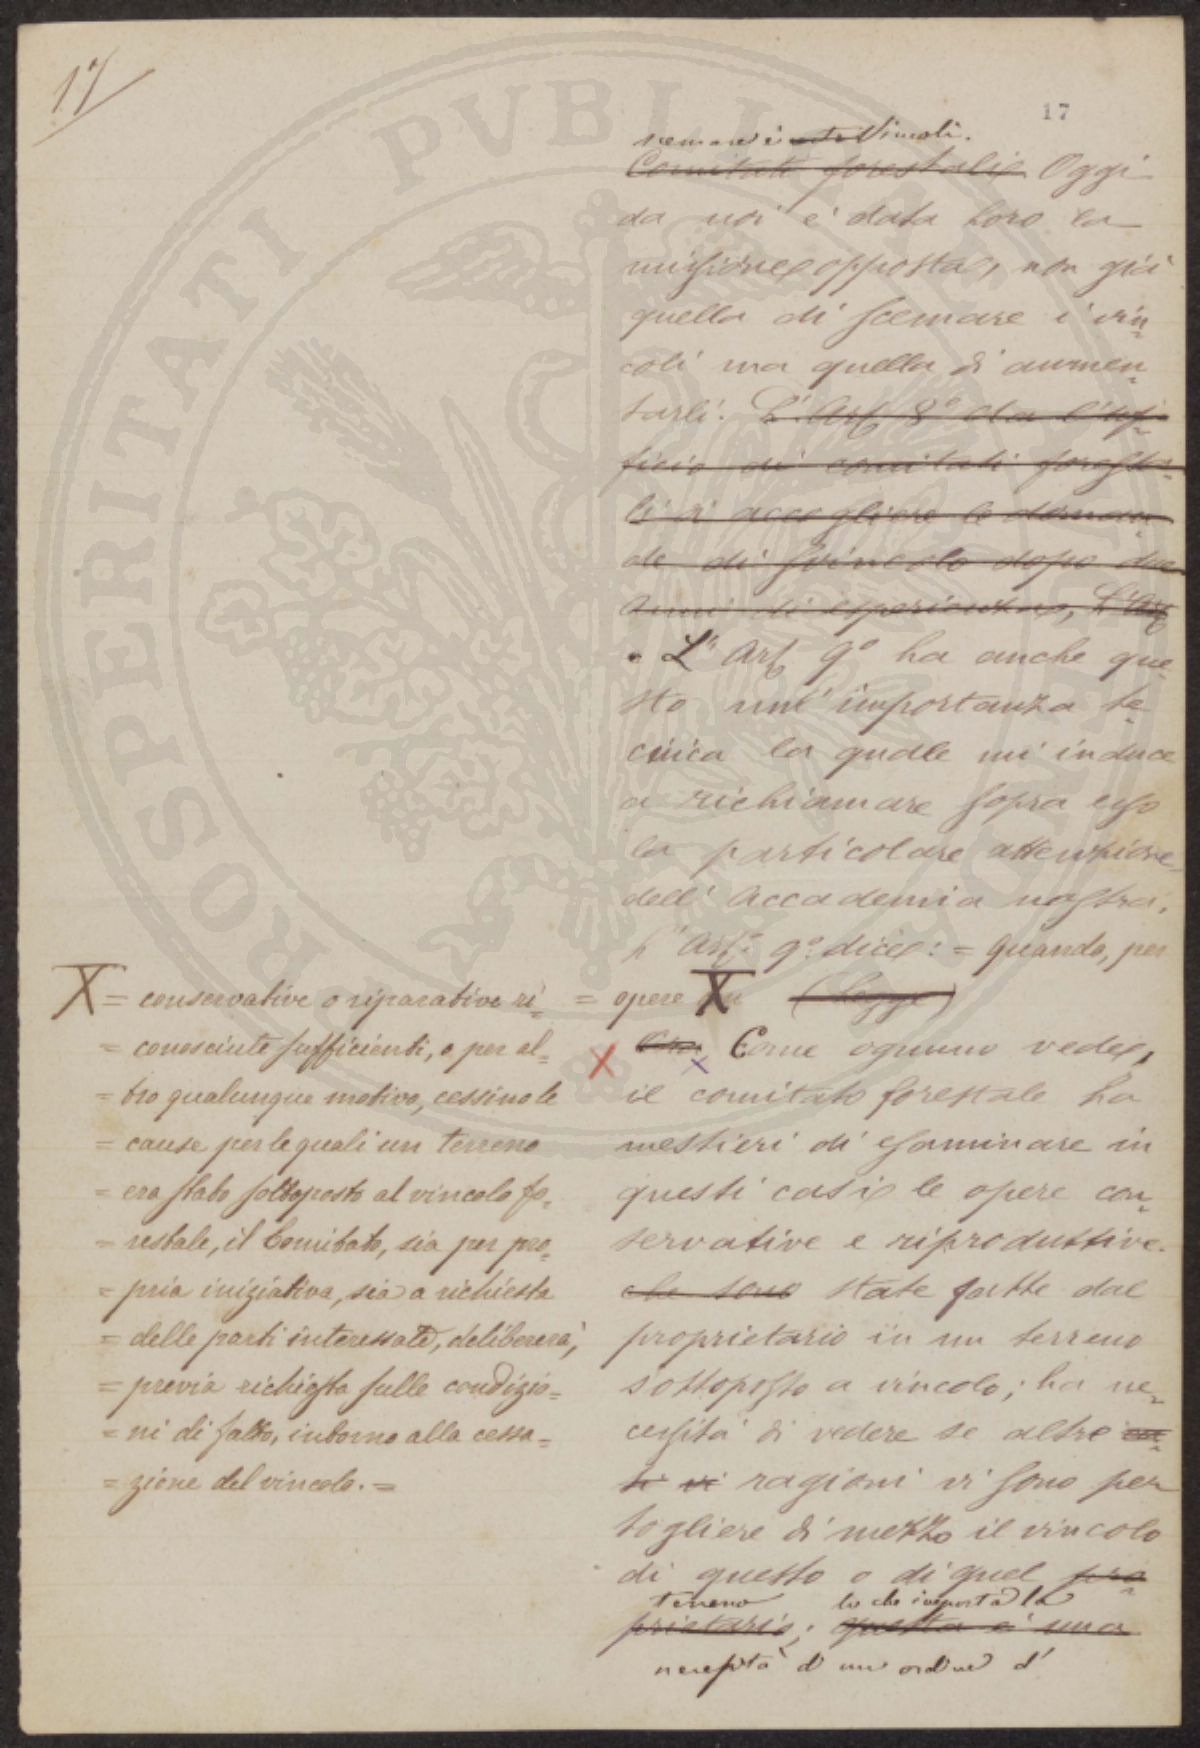 17
17
scemare i vincoli.
Comitati forestali Oggi
da noi è data loro la
missione opposta, non già
quella di scemare i vin=
coli ma quella di aumen=
tarli. L'Art 8° da l'uf=
ficio di comitati foresta=
li di accogliere le doman=
de di svincolo dopo due
anni di esperienza, L'Art
L' Art 9° ha anche que=
sto un' importanza te=
cnica la quale mi induce
a richiamare sopra esso
la particolare attenzione
dell' Accademia nostra.
L' Art. 9° dice: = Quando, per
= opere X (Legge)
X Come ognuno vede,
il comitato forestale ha
mestieri di esaminare in
questi casi le opere con=
servative e riproduttive
che sono state fatte dal
proprietario in un terreno
sottoposto a vincolo; ha ne=
cessità di vedere se altre
ragioni vi sono per
togliere di mezzo il vincolo
di questo o di quel pro=
terreno lo che importa la
prietario; questa è una
necessità di un ordine d'
X = conservative o riparative ri=
= conosciute sufficienti, o per al=
= tro qualunque motivo, cessino le
= cause per le quali un terreno
= era stato sottoposto al vincolo fo=
= restale, il Comitato, sia per pro=
= pria iniziativa, sia a richiesta
= delle parti interessate, delibererà,
= previa richiesta sulle condizio=
= ni di fatto, intorno alla cessa=
= zione del vincolo. =
PROSPERITATI PVBLICAE